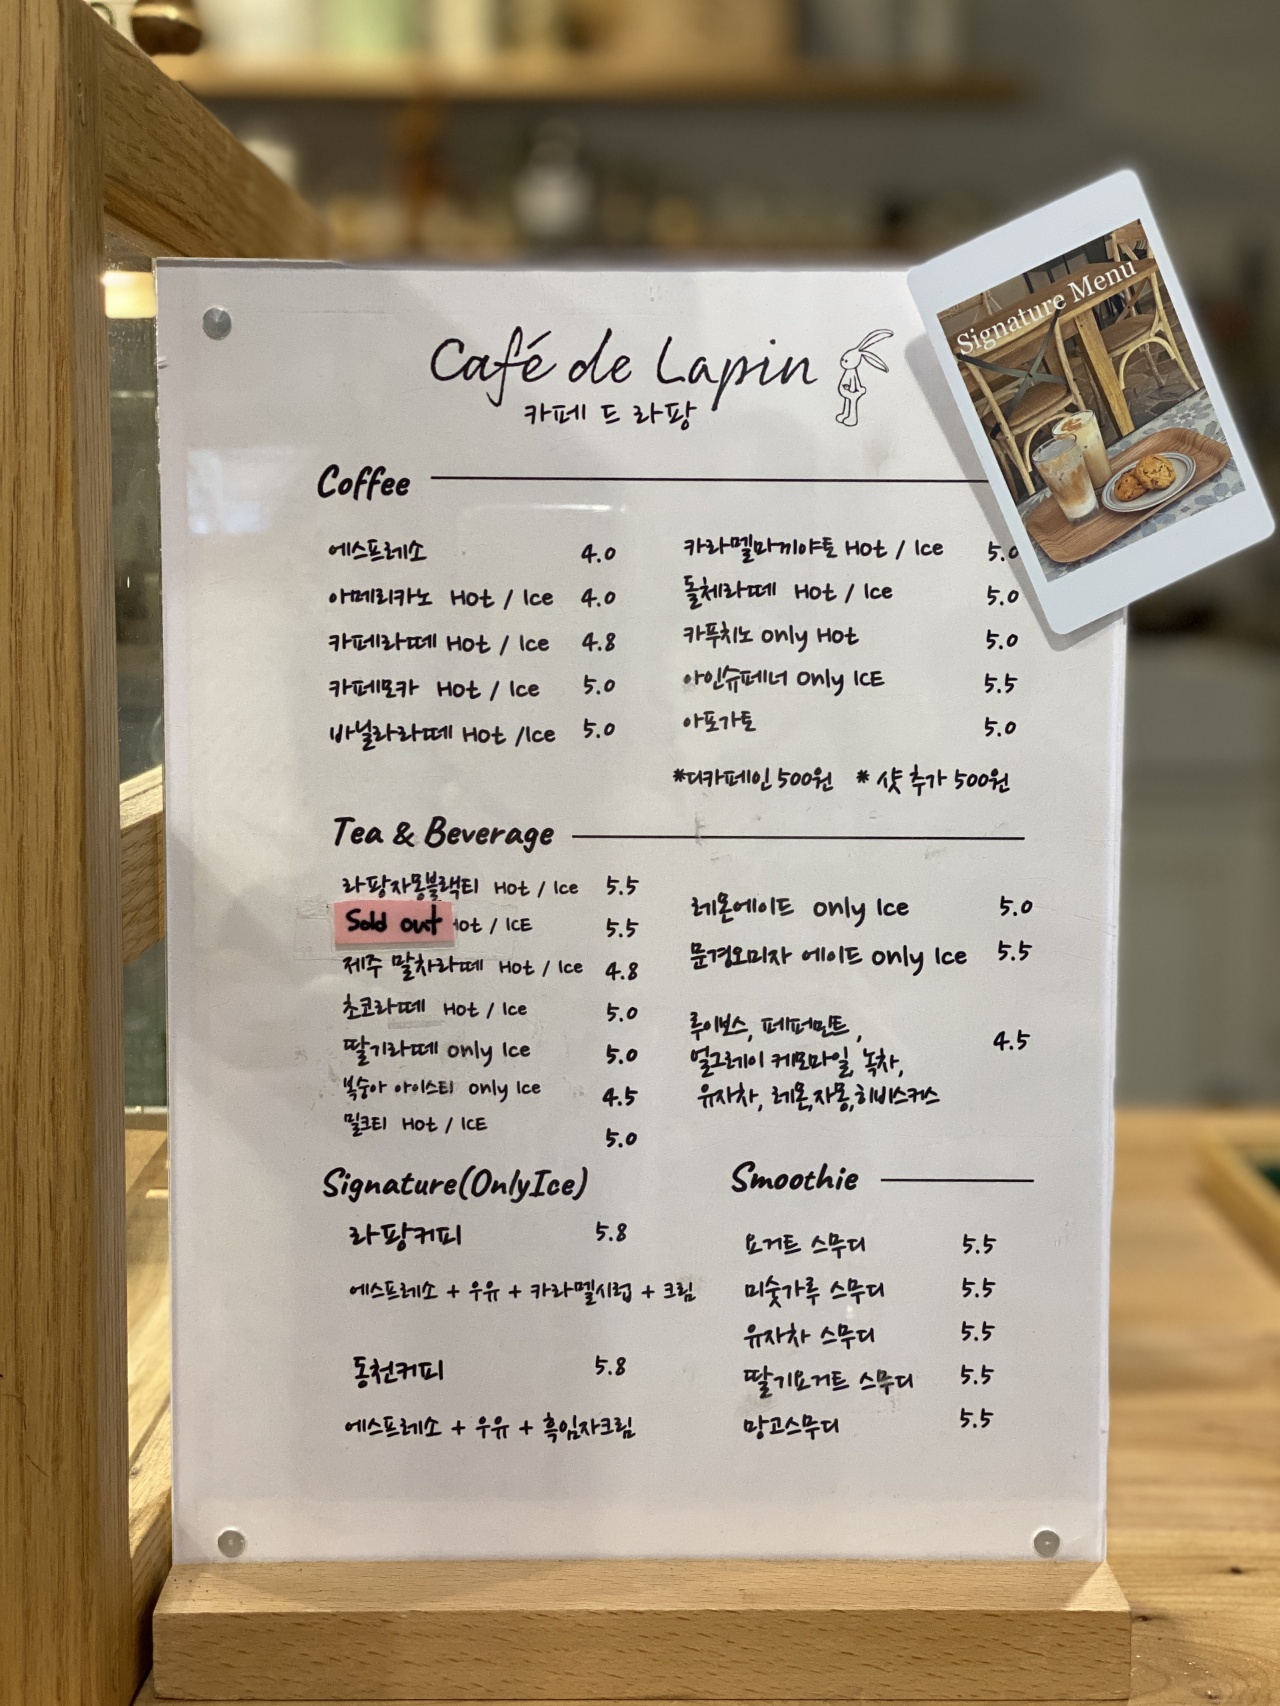 Café de Lapin
카페 드 라팡
Signature Menu
Coffee
에스프레소 4.0
아메리카노 Hot / Ice 4.0
카페라떼 Hot / Ice 4.8
카페모카 Hot / Ice 5.0
바닐라라떼 Hot /Ice 5.0
카라멜마끼야토 Hot / Ice 5.0
돌체라떼 Hot / Ice 5.0
카푸치노 only Hot 5.0
아인슈페너 only IcE 5.5
아포가토 5.0
*디카페인 500원 * 샷 추가 500원
Tea & Beverage
라팡자몽블랙티 Hot / Ice 5.5
Sold out Hot / IcE 5.5
제주 말차라떼 Hot / Ice 4.8
초코라떼 Hot / Ice 5.0
딸기라떼 only Ice 5.0
복숭아 아이스티 only Ice 4.5
밀크티 Hot / IcE 5.0
레몬에이드 only Ice 5.0
문경오미자 에이드 only Ice 5.5
루이보스, 페퍼민트,
얼그레이 케모마일, 녹차, 4.5
유자차, 레몬,자몽,히비스커스
Signature(OnlyIce)
라팡커피 5.8
에스프레소 + 우유 + 카라멜시럽 + 크림
동천커피 5.8
에스프레소 + 우유 + 흑임자크림
Smoothie
요거트 스무디 5.5
미숫가루 스무디 5.5
유자차 스무디 5.5
딸기요거트 스무디 5.5
망고스무디 5.5